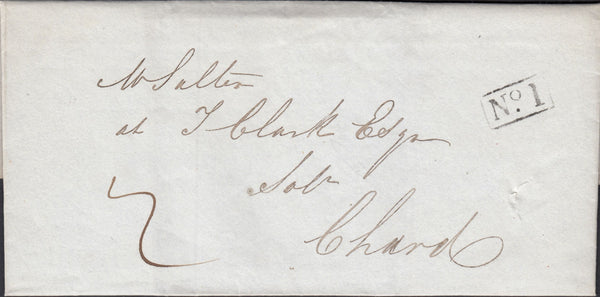 Mr Salter
No. 1
at T Clark Esqr
Solr
Chard
7